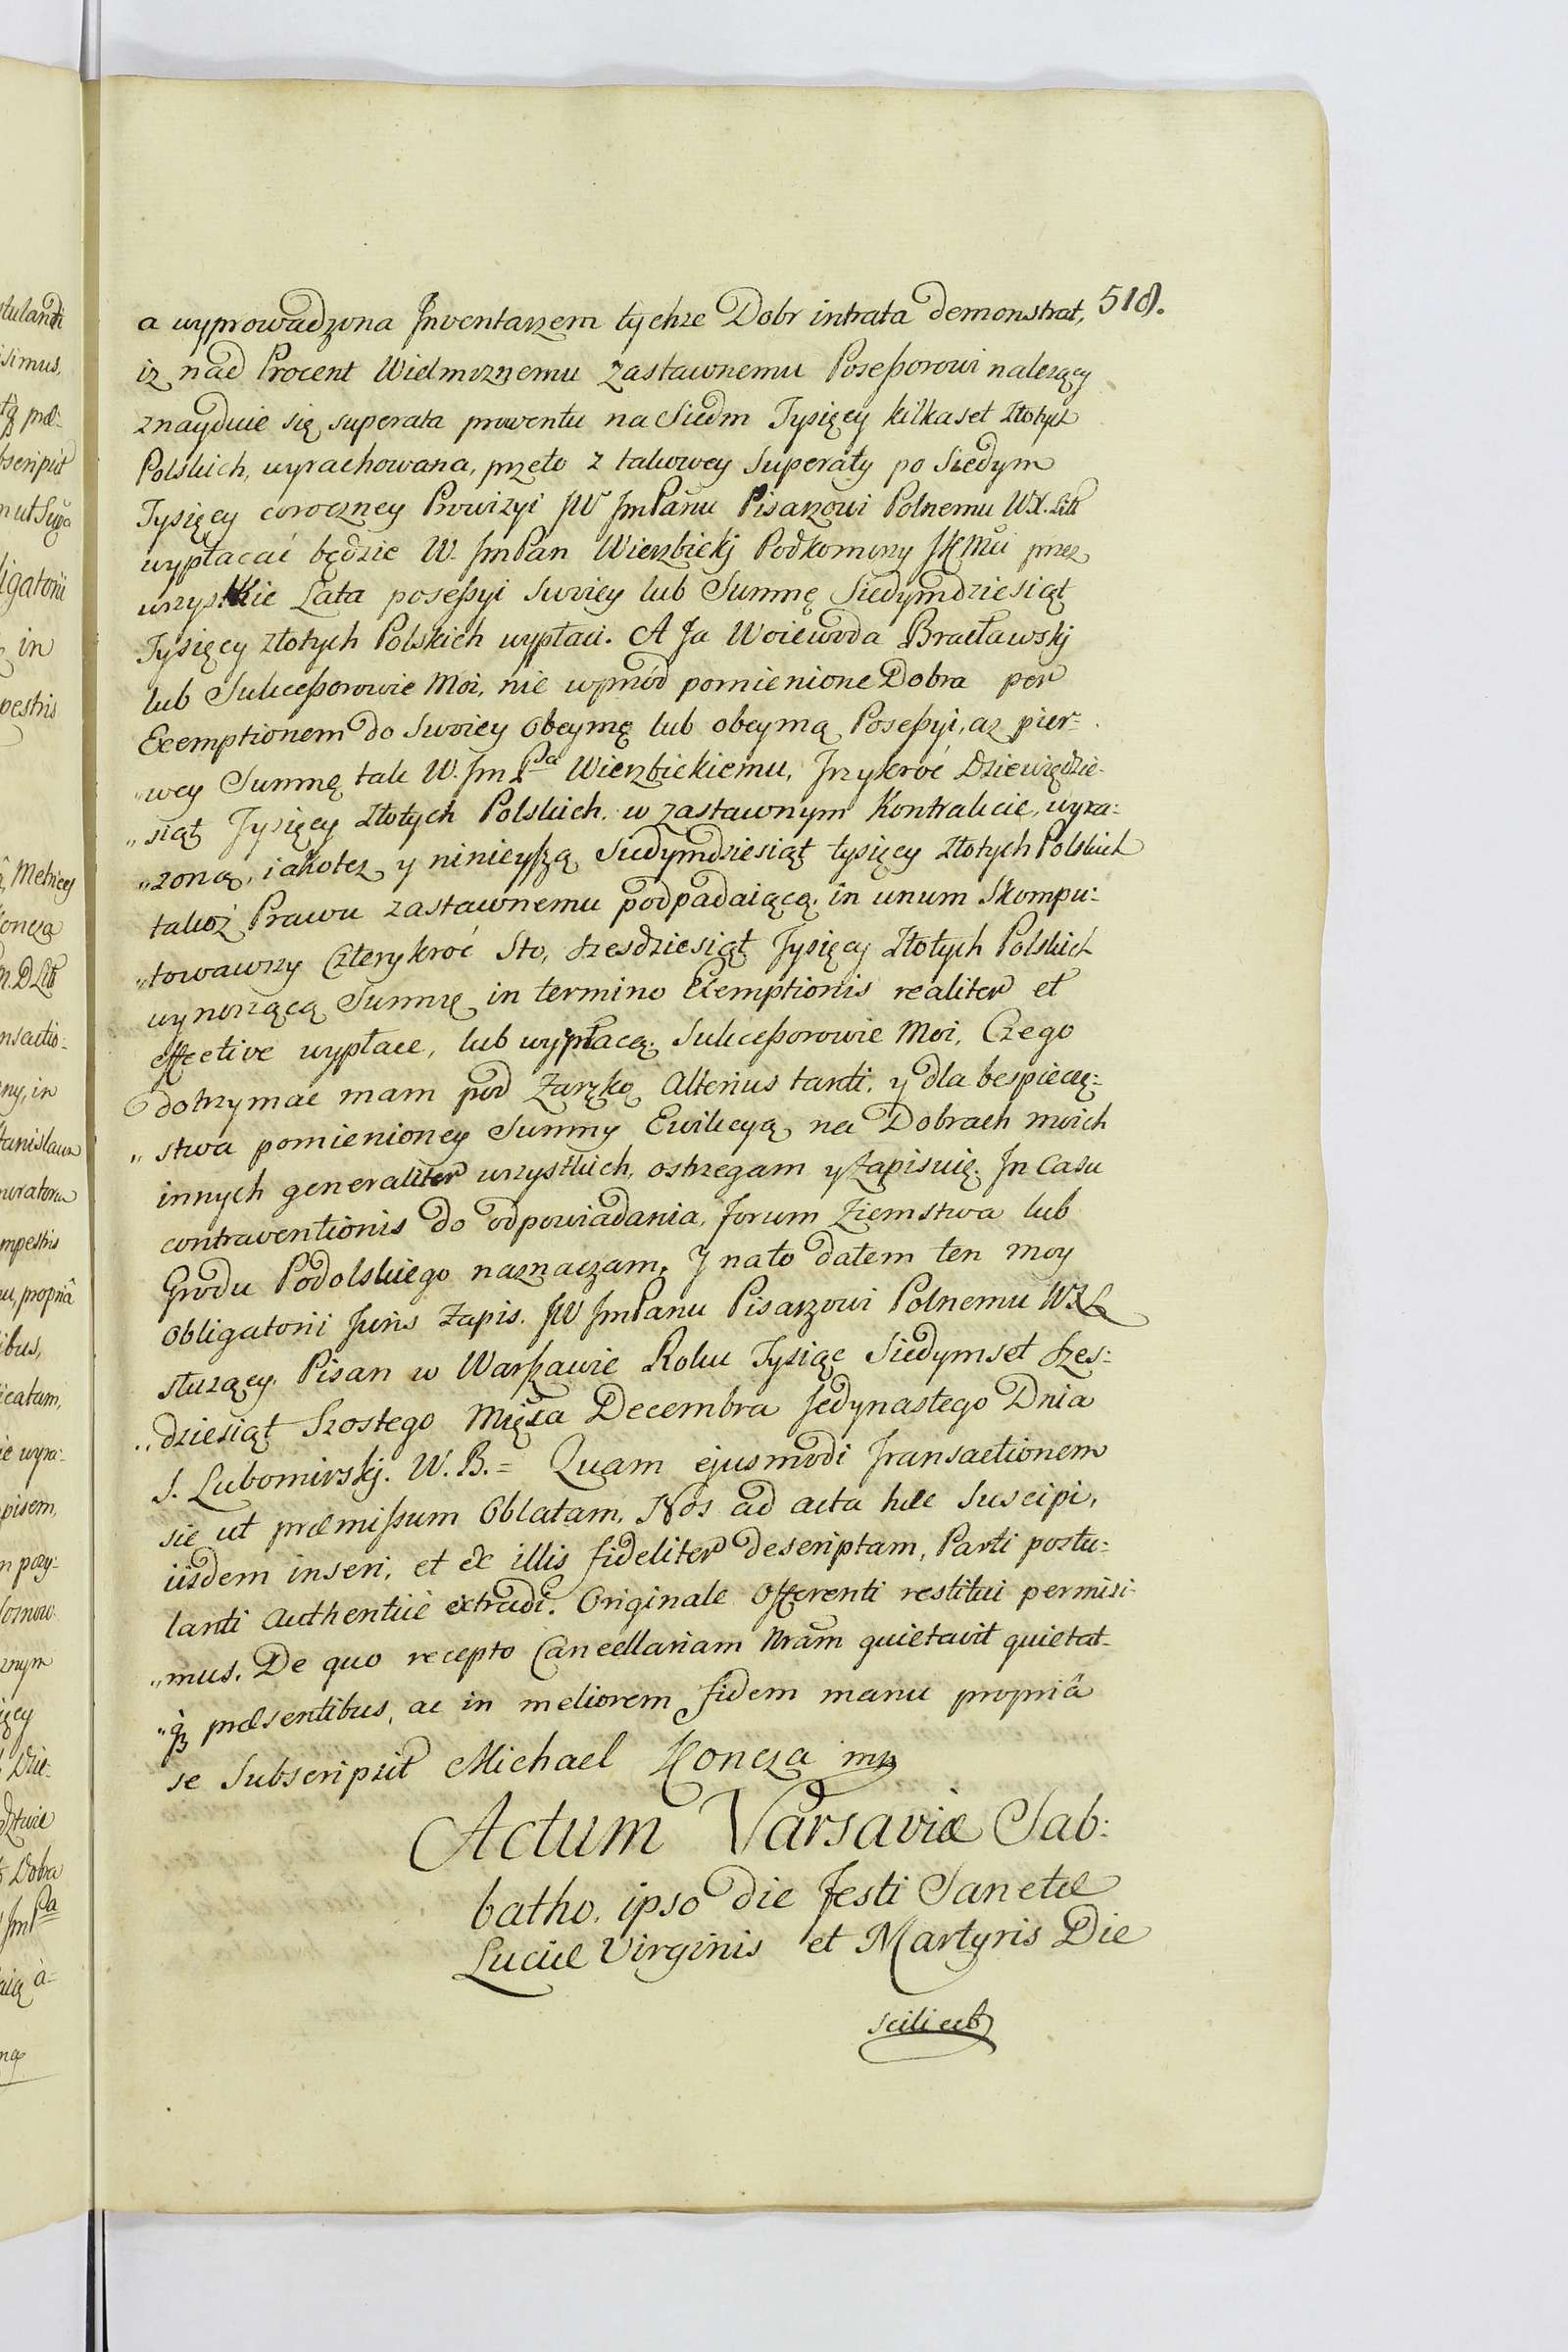 518.
a wyprowadzona Inwentarzem tychze Dobr intrata demonstrat,
iz nad Procent Wielmoznemu Zastawnemu Poseßorowi nalezący
znayduie się superata prowentu na Siedm Tysięcy kilkaset Złotych
Polskich, wyrachowana, przeto z takowey Superaty po Siedym
Tysięcy coroczney Prowizyi JW JmPanu Pisarzowi Polnemu WX. Litt
wypłacać będzie W. JmPan Wierzbickj Podkomorzy JKMci przez
wszystkie Lata poseßyi Swoiey lub Summę Siedymdziesiąt
Tysięcy złotych Polskich wypłaci. A Ja Woiewoda Bracławskj
lub Sukceßorowie Moi, nie wprzód pomienione Dobra per
Exemptionem do Swoiey Obeymę lub obeymą Poseßyi, az pier-
„wey Summę tak W. JmPa Wierzbickiemu, Trzykroć Dziewięcdzie-
„siąt Tysięcy Złotych Polskich w zastawnym Kontrakcie wyra:
„zoną, iakotez y ninieyszą Siedymdziesiąt tysięcy Złotych Polskich
takoż Prawu zastawnemu podpadaiącą, in unum Skompu:
„towawszy Czterykroć Sto, szesdziesiąt Tysięcy Złotych Polskich
wynoszącą Summę in termino Exemptionis realiter et
effective wypłace, lub wypłacą Sukceßorowie Moi, Czego
dotrzymac mam pod Zaręką Alterius tanti, y dla bespieczę:
„stwa pomienioney Summy Ewikcyą na Dobrach moich
innych generaliter wszystkich, ostrzegam y Zapisuię. In Casu
contraventionis do odpowiadania, forum Ziemstwa lub
Grodu Podolskiego naznaczam. I nato dałem ten moy
Obligatorii Juris Zapis. JW JmPanu Pisarzowi Polnemu WXL
słuzący. Pisan w Warszawie Roku Tysiąc Siedymset Szes:
„dziesiąt Szostego Mięsca Decembra Jedynastego Dnia
S. Lubomirskj. W. B. = Quam ejusmodi Transactionem
sic ut præmißum Oblatam, Nos ad acta hæc Suscipi,
iisdem inseri, et ex illis fideliter descriptam, Parti postu:
lanti Authentice extradi. Originale Offerenti restitui permisi-
„mus. De quo recepto Cancellariam Nram quietavit quietat-
„qȝ præsentibus, ac in meliorem fidem manu propriâ
se Subscripsit Michael Koncza mp
Actum Varsaviæ Sab:
batho, ipso die Festi Sanctæ
Luciæ Virginis et Martyris Die
scilicet